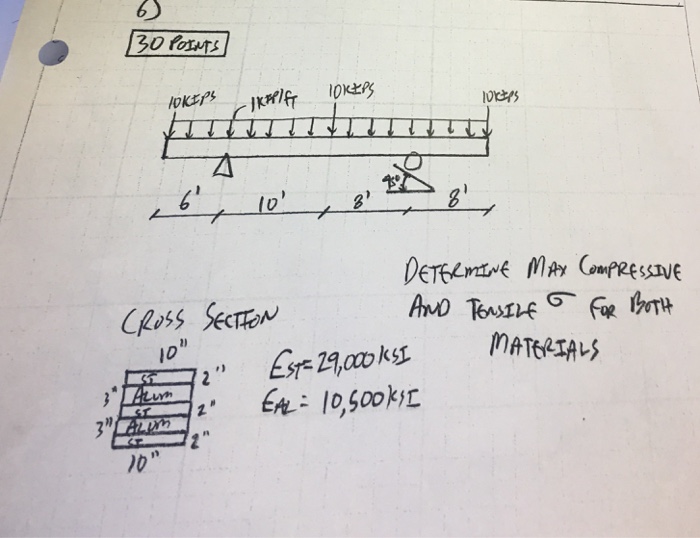 6)
30 POINTS
10KIPS
1KIP/FT
10KIPS
10KIPS
45°
6' 10' 8' 8'
DETERMINE MAX COMPRESSIVE
AND TENSILE σ FOR BOTH
MATERIALS
CROSS SECTION
10"
ST 2"
3" ALUM
ST 2"
3" ALUM
ST 2"
10"
EST = 29,000 KSI
EAL = 10,500 KSI